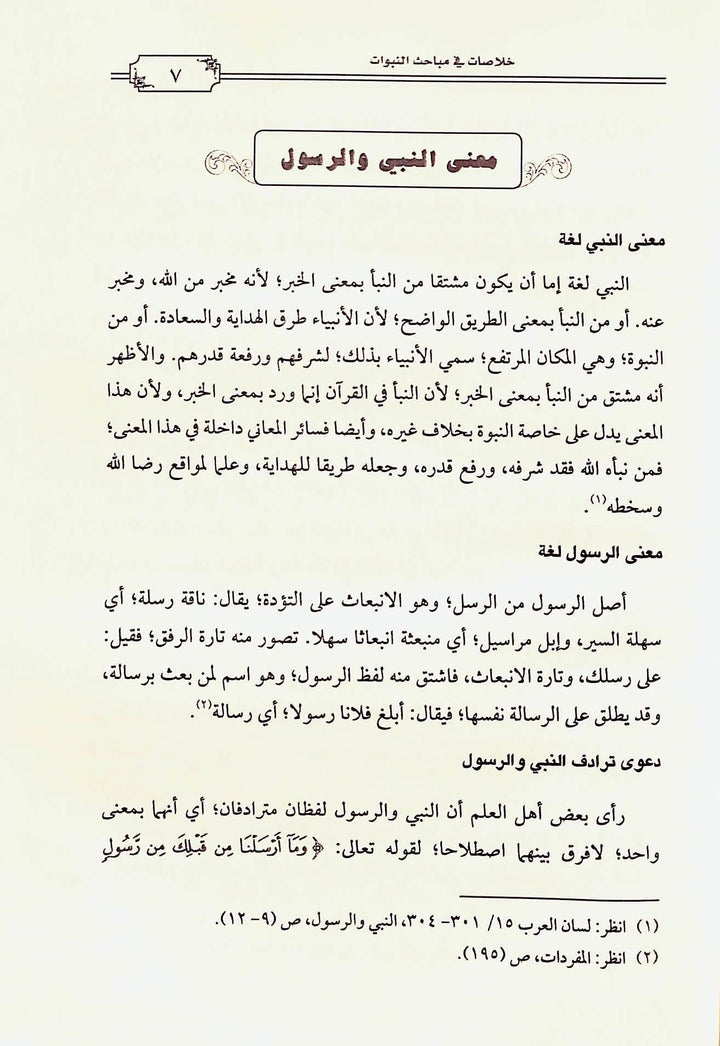 خلاصات في مباحث النبوات
٧
معنى النبي والرسول
معنى النبي لغة
النبي لغة إما أن يكون مشتقا من النبأ بمعنى الخبر؛ لأنه مخبر من الله، ومخبر
عنه. أو من النبأ بمعنى الطريق الواضح؛ لأن الأنبياء طرق الهداية والسعادة. أو من
النبوة؛ وهي المكان المرتفع؛ سمي الأنبياء بذلك؛ لشرفهم ورفعة قدرهم. والأظهر
أنه مشتق من النبأ بمعنى الخبر؛ لأن النبأ في القرآن إنما ورد بمعنى الخبر، ولأن هذا
المعنى يدل على خاصة النبوة بخلاف غيره، وأيضا فسائر المعاني داخلة في هذا المعنى؛
فمن نبأه الله فقد شرفه، ورفع قدره، وجعله طريقا للهداية، وعلما لمواقع رضا الله
وسخطه(١).
معنى الرسول لغة
أصل الرسول من الرسل؛ وهو الانبعاث على التؤدة؛ يقال: ناقة رسلة؛ أي
سهلة السير، وإبل مراسيل؛ أي منبعثة انبعاثا سهلا. تصور منه تارة الرفق؛ فقيل:
على رسلك، وتارة الانبعاث، فاشتق منه لفظ الرسول؛ وهو اسم لمن بعث برسالة،
وقد يطلق على الرسالة نفسها؛ فيقال: أبلغ فلانا رسولا؛ أي رسالة(٢).
دعوى ترادف النبي والرسول
رأى بعض أهل العلم أن النبي والرسول لفظان مترادفان؛ أي أنهما بمعنى
واحد؛ لافرق بينهما اصطلاحا؛ لقوله تعالى: ﴿وَمَآ أَرْسَلْنَا مِن قَبْلِكَ مِن رَّسُولٍ
(١) انظر: لسان العرب ١٥/ ٣٠١- ٣٠٤، النبي والرسول، ص (٩- ١٢).
(٢) انظر: المفردات، ص (١٩٥).